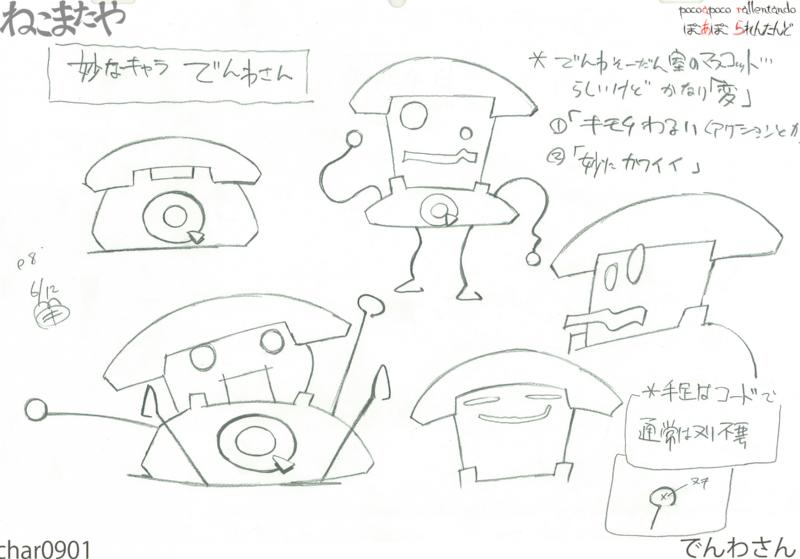 ねこまたや
pocoapoco rallentando
ぽあぽこ られんたんど
妙なキャラ でんわさん
* でんわそーだん室のマスコット…
らしいけど かなり「変」
①「キモチわるい(アクションとか
②「妙にカワイイ」
p8
6/12
キ
*手足はコードで
通常はヌリ不要
ヌキ
char0901
でんわさん